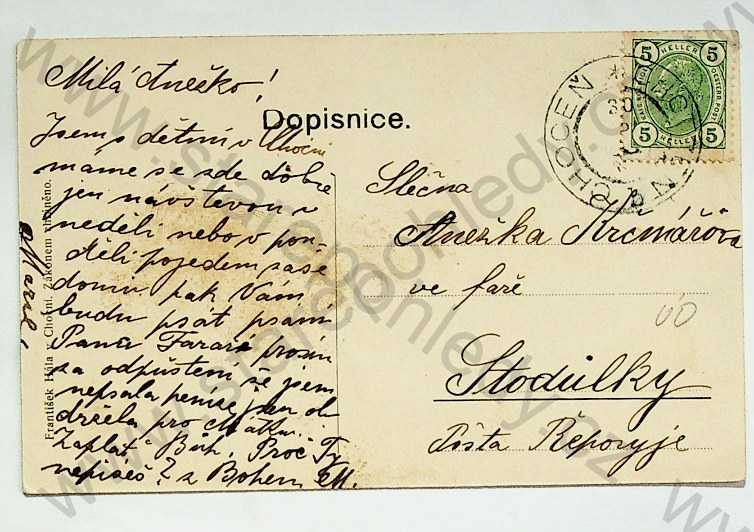 Dopisnice.
Milá Anežko!
Jsem s dětmi v Chocni
máme se zde dobře
jen návštěvou v
neděli nebo v pon-
děli pojedem zase
domu pak Vám
budu psát psaní
Pana Faráře prosím
za odpuštení že jsem
nepsala peníze jsem ob
držela pro Matku
Zaplať Bůh. Proč Ty
nepíšeš? s Bohem M.
Marie
František Hála v Chocni. Zákonem chráněno.
CHOCEŇ
CHOCEN
5 HELLER 5
5 HELLER 5
Slečna
Anežka Krčmářova
ve faře
Stodůlky
Pošta Řeporyje
60
www.starepohledy.cz